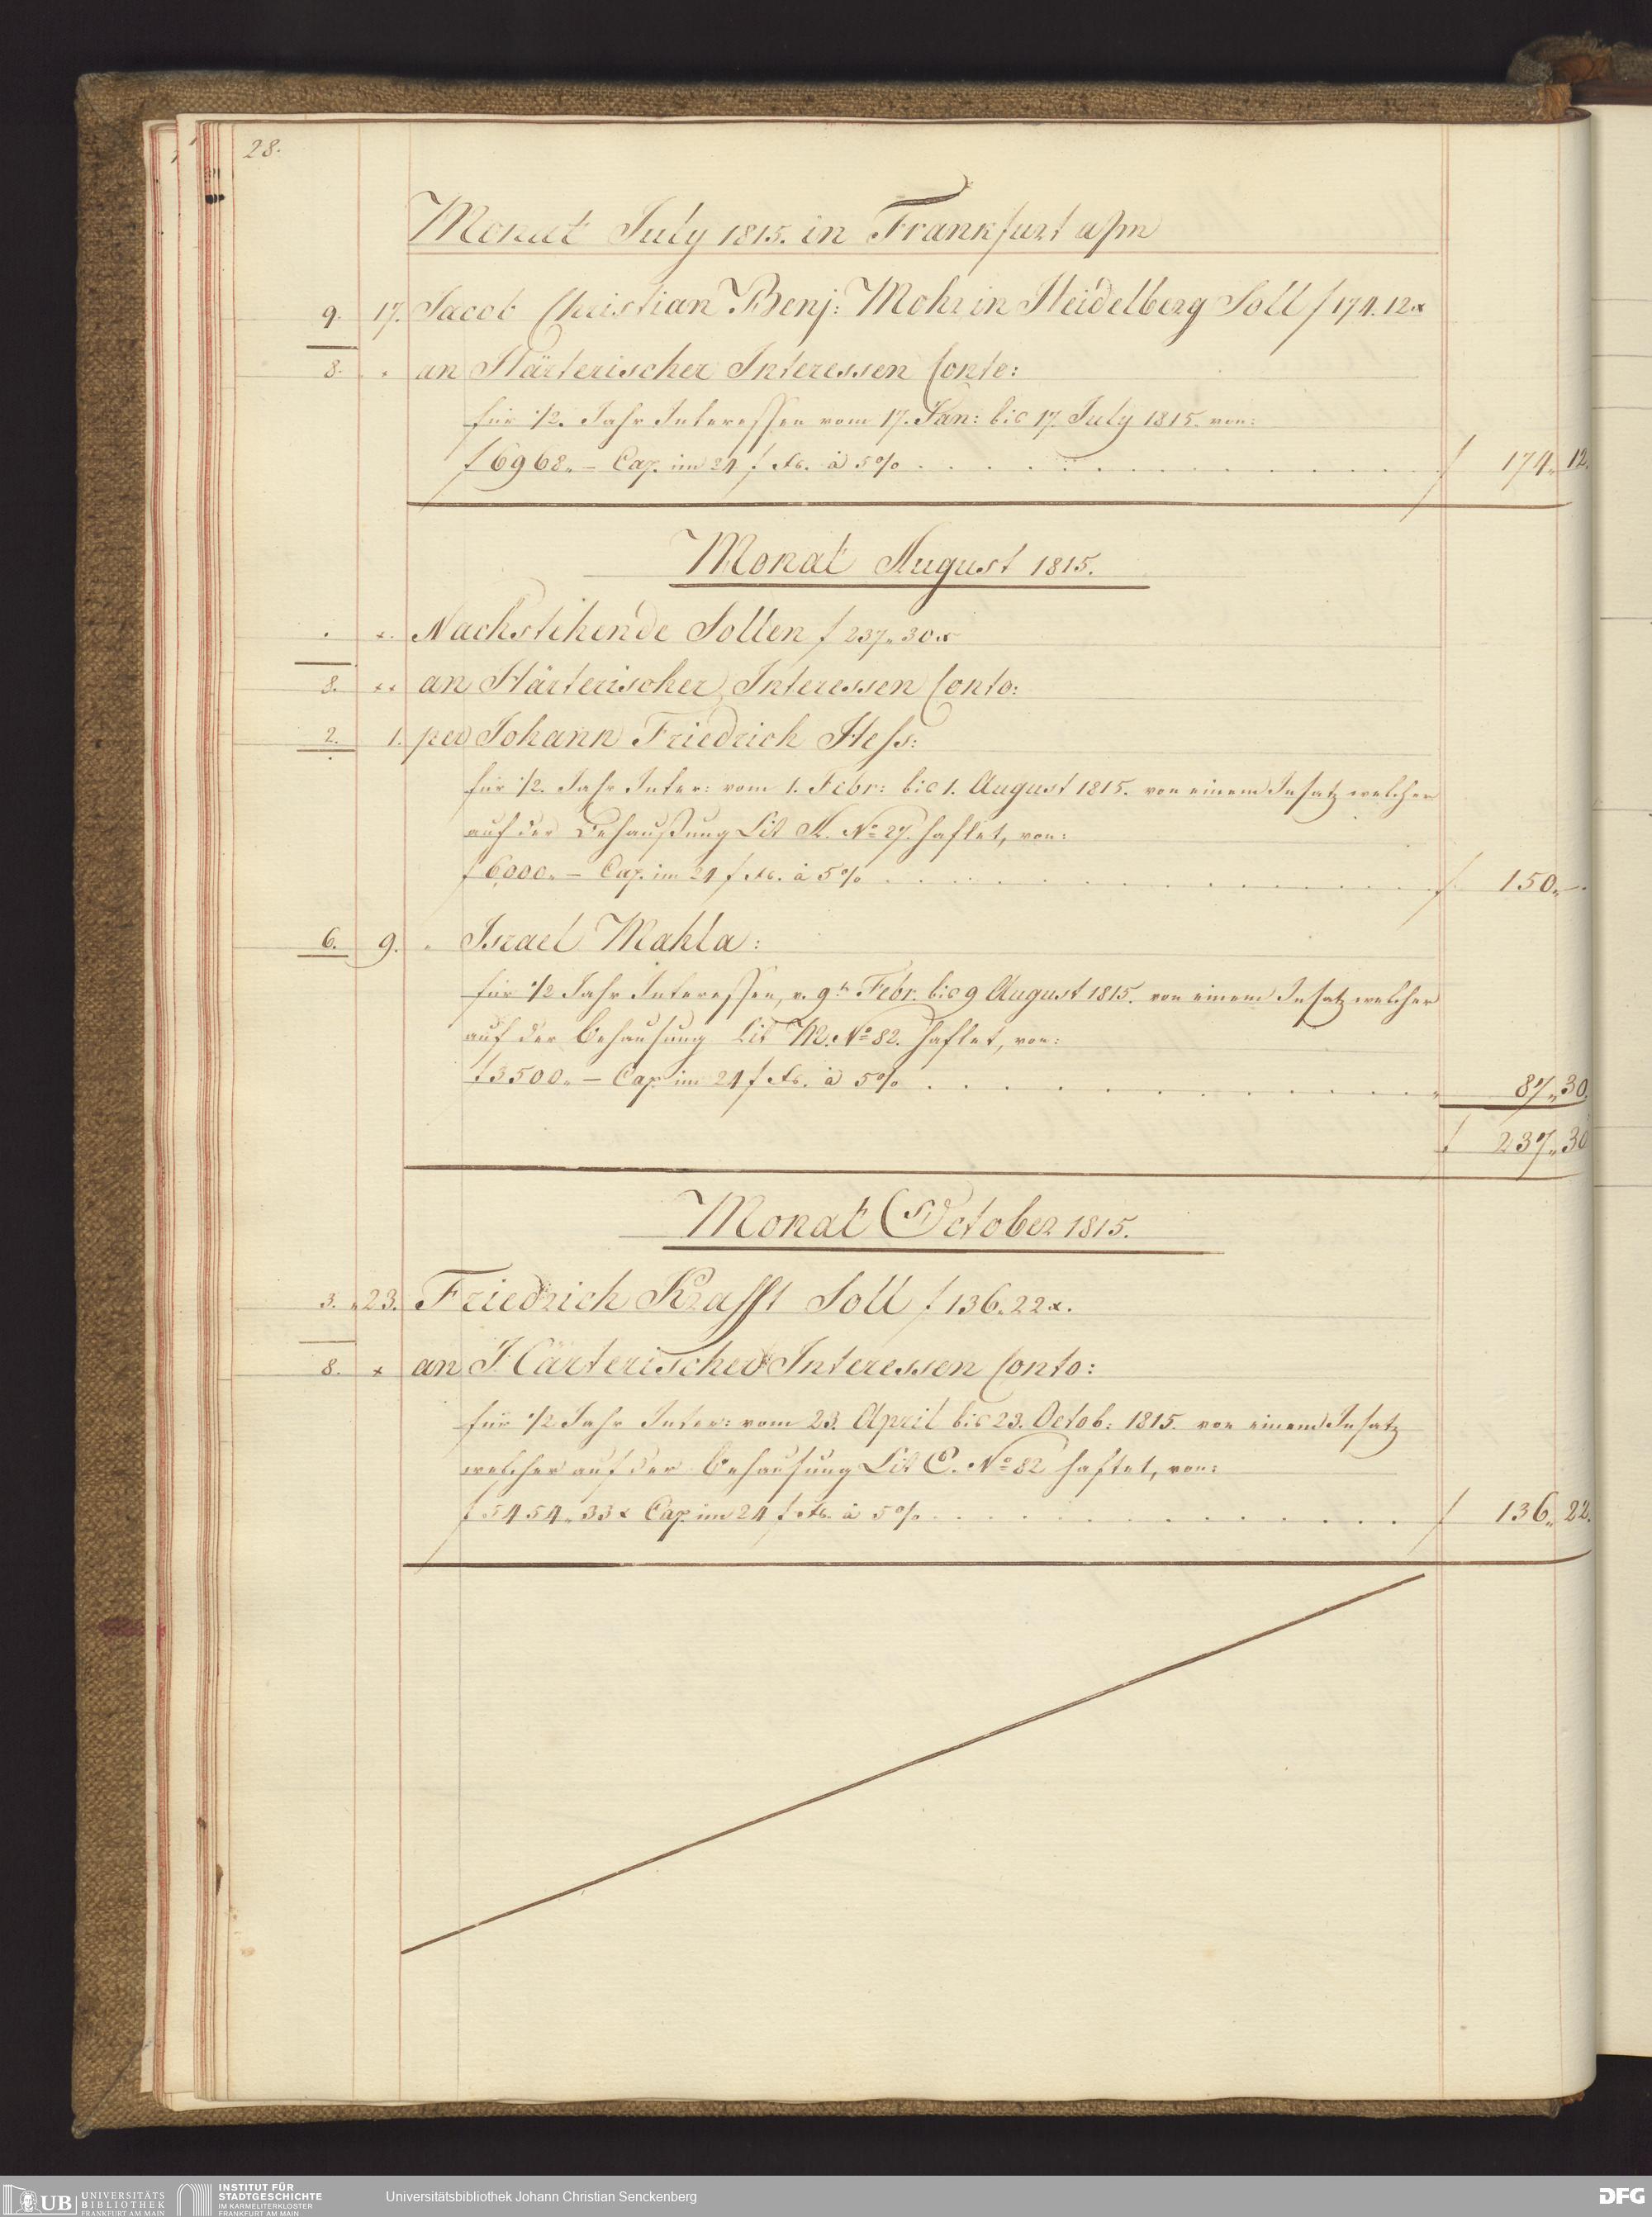 28.
Monat July 1815. in Frankfurt a/m
9. 17. Jacob Christian Benj: Mohr in Heidelberg Soll f 174. 12 x
8. " an Härterischer Interessen Conto:
für 1/2. Jahr Interessen vom 17. Jan: bis 17. July 1815. von:
f 6968. – Cap. im 24 f à 5% f 174. 12.
Monat August 1815.
Nachstehende Sollen f 237. 30 x
8. an Härterischer Interessen Conto:
2. 1. per Johann Friedrich Hess:
für 1/2. Jahr Inter: vom 1. Febr: bis 1. August 1815. von einem Insatz welcher
auf der Behaußung Lit No 27. haftet, von:
f 6000. – Cap. im 24 f à 5% f 150. –.
6. 9. " Israel Mahla:
für 1/2 Jahr Interessen, v. 9t Febr. bis 9 August 1815. von einem Insatz welcher
auf der Behausung Lit M. No 82. haftet, von:
f 3500. – Cap im 24 f à 5% " 87. 30.
f 237. 30
Monat October 1815.
3. 23. Friedrich Krafft Soll f 136. 22 x.
8. x an Härterischer Interessen Conto:
für 1/2 Jahr Inter: vom 23. April bis 23. Octob: 1815. von einem Insatz
welcher auf der Behausung Lit C. No 82 haftet, von:
f 5454. 33 x Cap im 24 f à 5% f 136. 22.
UB UNIVERSITÄTS BIBLIOTHEK FRANKFURT AM MAIN
INSTITUT FÜR STADTGESCHICHTE IM KARMELITERKLOSTER FRANKFURT AM MAIN
Universitätsbibliothek Johann Christian Senckenberg
DFG